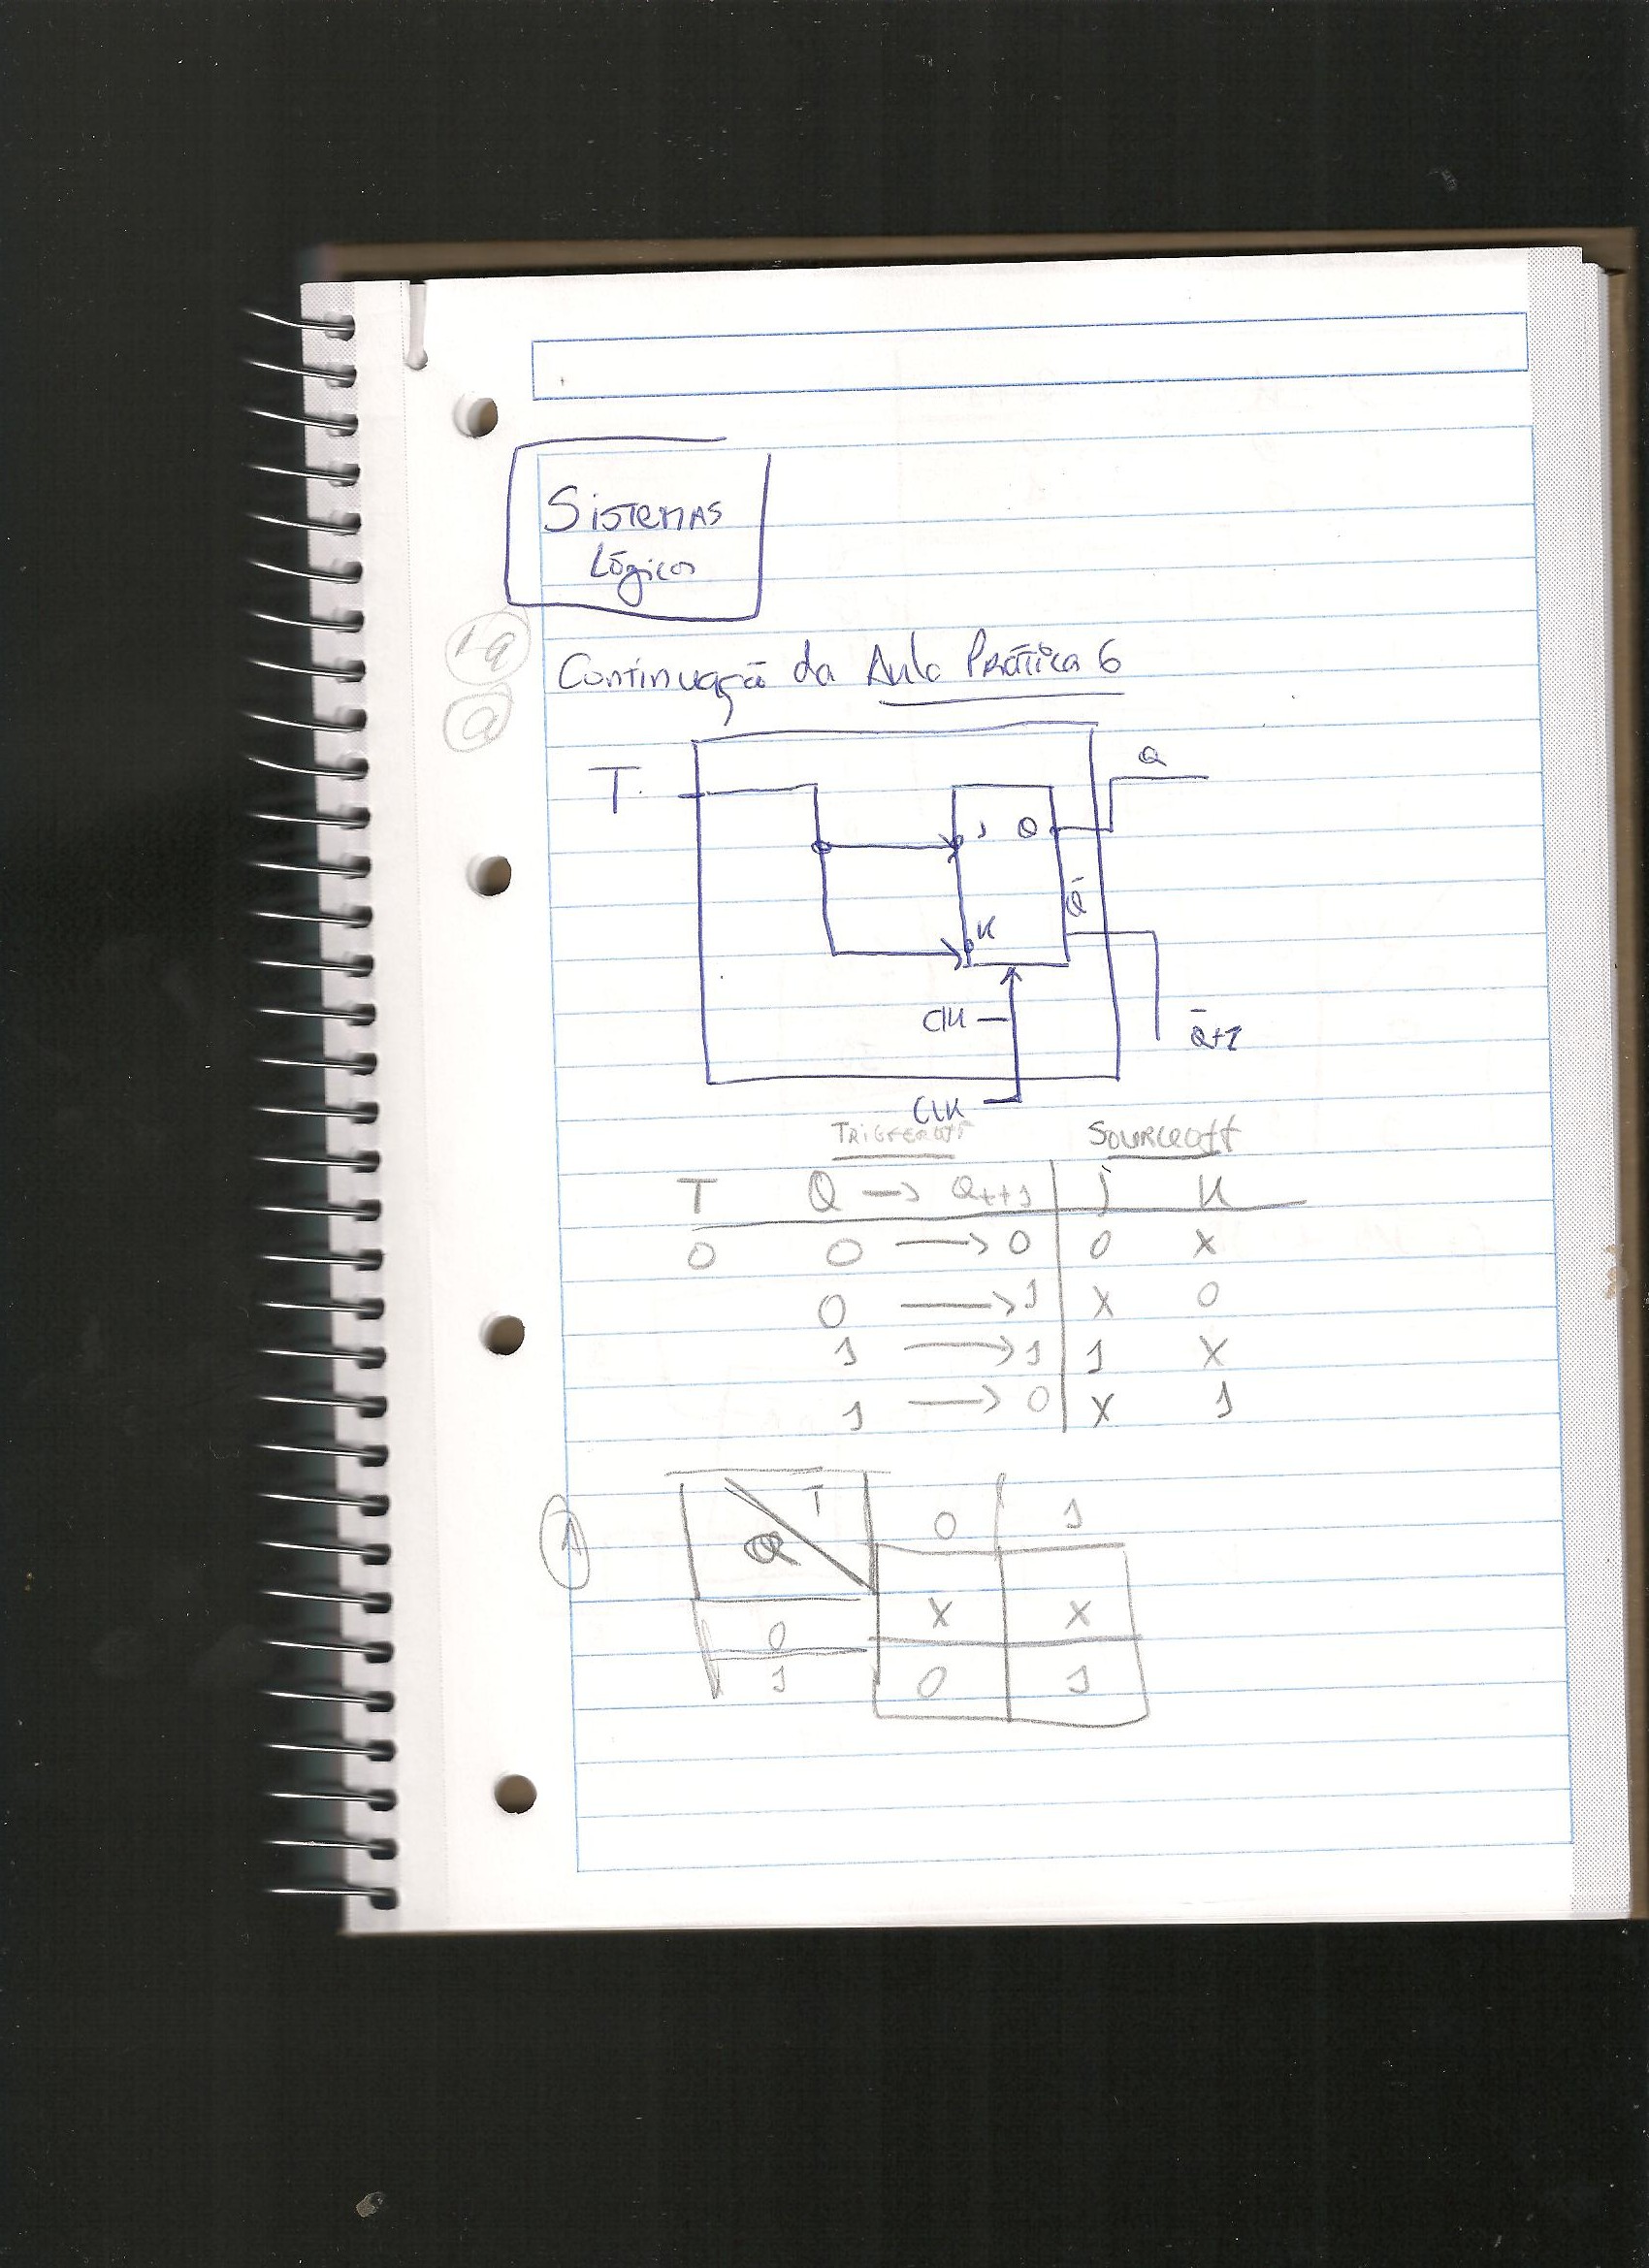 Sistemas
Lógicos
1ª
a
Continuação da Aula Prática 6
T
Q
J Q
Q̄
K
Clk
Q̄+1
CLK
Target FF Source FF
T Q → Qt+1 J K
0 0 → 0 0 X
0 → 1 X 0
1 → 1 1 X
1 → 0 X 1
T 0 1
Q
0 X X
1 0 1